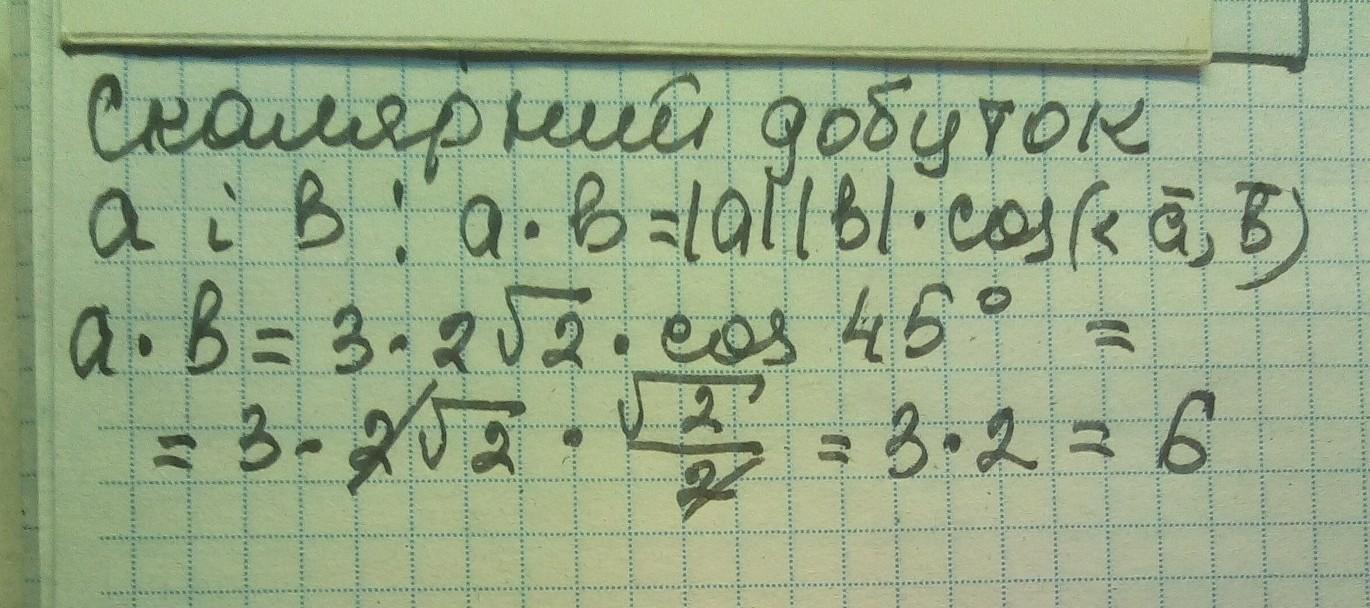 Скалярний добуток
a і b : a · b = |a| |b| · cos(< a̅, b̅)
a · b = 3 · 2√2 · cos 45° =
= 3 · 2√2 · √2/2 = 3 · 2 = 6